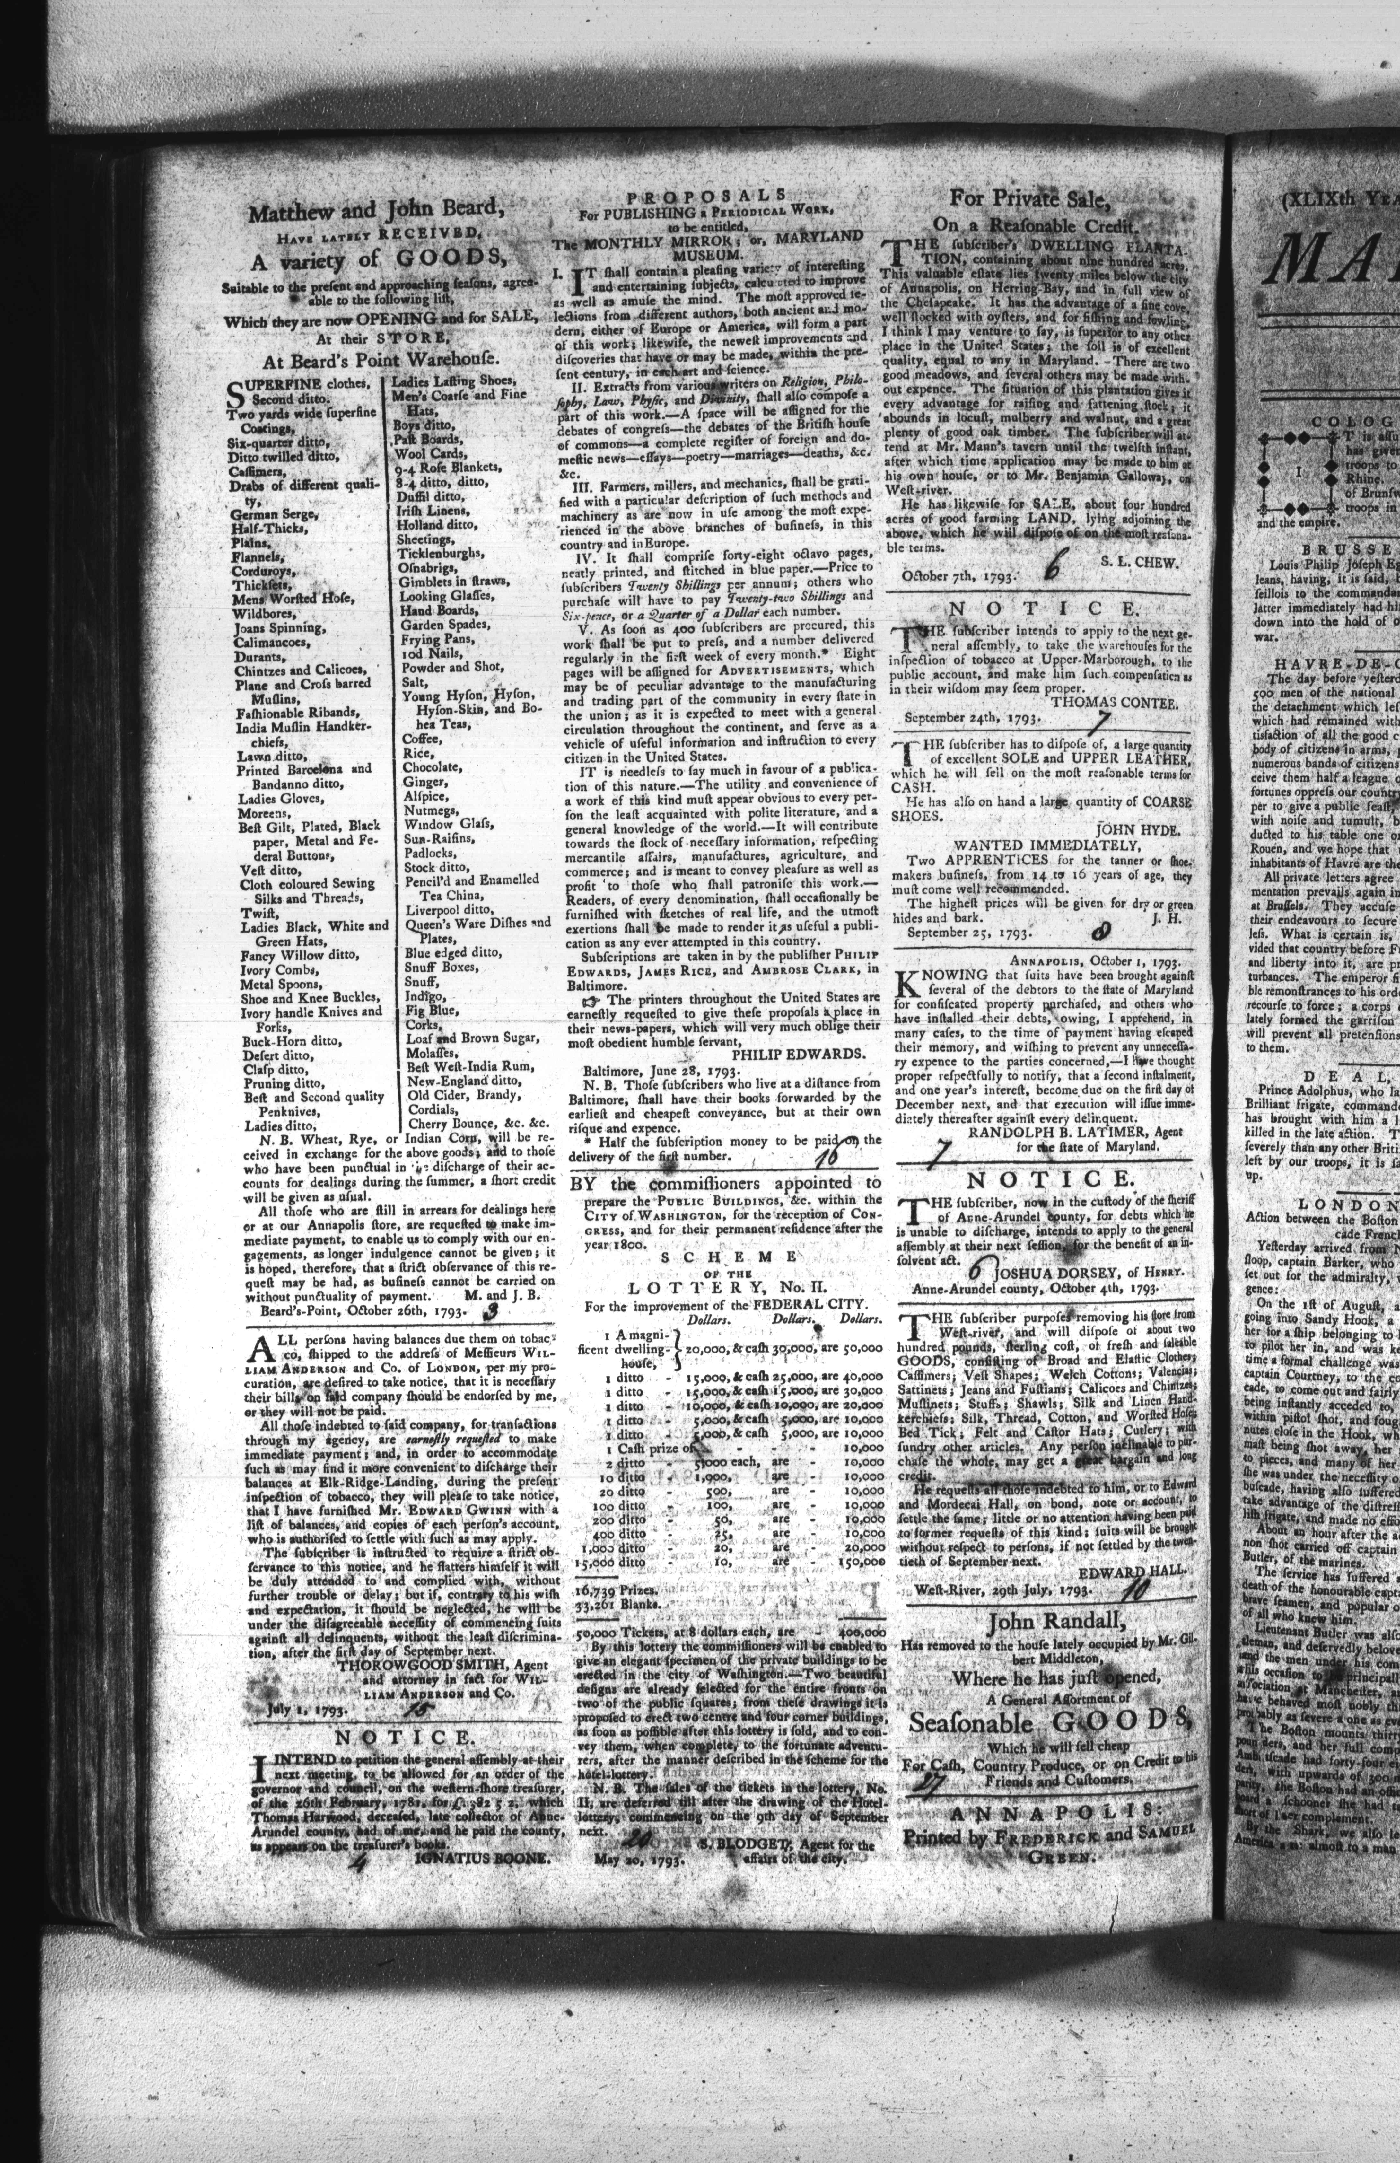 Matthew and John Beard,
HAVE LATELY RECEIVED,
A variety of GOODS,
Suitable to the present and approaching seasons, agree-
able to the following list,
Which they are now OPENING and for SALE,
At their STORE,
At Beard's Point Warehouse.
SUPERFINE clothes,
Second ditto.
Two yards wide superfine
Coatings,
Six-quarter ditto,
Ditto twilled ditto,
Cassimers,
Drabs of different quali-
ty,
German Serge,
Half-Thicks,
Plains,
Flannels,
Corduroys,
Thicksets,
Mens Worsted Hose,
Wildbores,
Joans Spinning,
Calimancoes,
Durants,
Chintzes and Calicoes,
Plane and Cross barred
Muslins,
Fashionable Ribands,
India Muslin Handker-
chiefs,
Lawn ditto,
Printed Barcelona and
Bandanno ditto,
Ladies Gloves,
Moreens,
Best Gilt, Plated, Black
paper, Metal and Fe-
deral Buttons,
Vest ditto,
Cloth coloured Sewing
Silks and Threads,
Twist,
Ladies Black, White and
Green Hats,
Fancy Willow ditto,
Ivory Combs,
Metal Spoons,
Shoe and Knee Buckles,
Ivory handle Knives and
Forks,
Buck-Horn ditto,
Desert ditto,
Clasp ditto,
Pruning ditto,
Best and Second quality
Penknives,
Ladies ditto,
Ladies Lasting Shoes,
Men's Coarse and Fine
Hats,
Boys ditto,
Past Boards,
Wool Cards,
9-4 Rose Blankets,
8-4 ditto, ditto,
Duffil ditto,
Irish Linens,
Holland ditto,
Sheetings,
Ticklenburghs,
Osnabrigs,
Gimblets in straws,
Looking Glasses,
Hand Boards,
Garden Spades,
Frying Pans,
10d Nails,
Powder and Shot,
Salt,
Young Hyson, Hyson,
Hyson-Skin, and Bo-
hea Teas,
Coffee,
Rice,
Chocolate,
Ginger,
Alspice,
Nutmegs,
Window Glass,
Sun-Raisins,
Padlocks,
Stock ditto,
Pencil'd and Enamelled
Tea China,
Liverpool ditto,
Queen's Ware Dishes and
Plates,
Blue edged ditto,
Snuff Boxes,
Snuff,
Indigo,
Fig Blue,
Corks,
Loaf and Brown Sugar,
Molasses,
Best West-India Rum,
New-England ditto,
Old Cider, Brandy,
Cordials,
Cherry Bounce, &c. &c.
N. B. Wheat, Rye, or Indian Corn, will be re-
ceived in exchange for the above goods; and to those
who have been punctual in the discharge of their ac-
counts for dealings during the summer, a short credit
will be given as usual.
All those who are still in arrears for dealings here
or at our Annapolis store, are requested to make im-
mediate payment, to enable us to comply with our en-
gagements, as longer indulgence cannot be given; it
is hoped, therefore, that a strict observance of this re-
quest may be had, as business cannot be carried on
without punctuality of payment. M. and J. B.
Beard's-Point, October 26th, 1793. 3
ALL persons having balances due them on tobac-
co, shipped to the address of Messieurs WIL-
LIAM ANDERSON and Co. of LONDON, per my pro-
curation, are desired to take notice, that it is necessary
their bills on said company should be endorsed by me,
or they will not be paid.
All those indebted to said company, for transactions
through my agency, are earnestly requested to make
immediate payment; and, in order to accommodate
such as may find it more convenient to discharge their
balances at Elk-Ridge-Landing, during the present
inspection of tobacco, they will please to take notice,
that I have furnished Mr. EDWARD GWINN with a
list of balances, and copies of each person's account,
who is authorised to settle with such as may apply.
The subscriber is instructed to require a strict ob-
servance to this notice, and he flatters himself it will
be duly attended to and complied with, without
further trouble or delay; but if, contrary to his wish
and expectation, it should be neglected, he will be
under the disagreeable necessity of commencing suits
against all delinquents, without the least discrimina-
tion, after the first day of September next.
THOROWGOOD SMITH, Agent
and attorney in fact for WIL-
LIAM ANDERSON and Co.
July 1, 1793. 15
NOTICE.
I INTEND to petition the general assembly at their
next meeting, to be allowed for an order of the
governor and council, on the western-shore treasurer,
of the 26th February, 1781, for £. 382 5 2, which
Thomas Harwood, deceased, late collector of Anne-
Arundel county, had of me, and he paid the county,
as appears on the treasurer's books.
4 IGNATIUS BOONE.
PROPOSALS
For PUBLISHING a PERIODICAL WORK,
to be entitled,
The MONTHLY MIRROR; or, MARYLAND
MUSEUM.
I. IT shall contain a pleasing variety of interesting
and entertaining subjects, calculated to improve
as well as amuse the mind. The most approved se-
lections from different authors, both ancient and mo-
dern, either of Europe or America, will form a part
of this work; likewise, the newest improvements and
discoveries that have or may be made, within the pre-
sent century, in each art and science.
II. Extracts from various writers on Religion, Philo-
sophy, Law, Physic, and Divinity, shall also compose a
part of this work.—A space will be assigned for the
debates of congress—the debates of the British house
of commons—a complete register of foreign and do-
mestic news—essays—poetry—marriages—deaths, &c.
&c.
III. Farmers, millers, and mechanics, shall be grati-
fied with a particular description of such methods and
machinery as are now in use among the most expe-
rienced in the above branches of business, in this
country and in Europe.
IV. It shall comprise forty-eight octavo pages,
neatly printed, and stitched in blue paper.—Price to
subscribers Twenty Shillings per annum; others who
purchase will have to pay Twenty-two Shillings and
Six-pence, or a Quarter of a Dollar each number.
V. As soon as 400 subscribers are procured, this
work shall be put to press, and a number delivered
regularly in the first week of every month.* Eight
pages will be assigned for ADVERTISEMENTS, which
may be of peculiar advantage to the manufacturing
and trading part of the community in every state in
the union; as it is expected to meet with a general
circulation throughout the continent, and serve as a
vehicle of useful information and instruction to every
citizen in the United States.
IT is needless to say much in favour of a publica-
tion of this nature.—The utility and convenience of
a work of this kind must appear obvious to every per-
son the least acquainted with polite literature, and a
general knowledge of the world.—It will contribute
towards the stock of necessary information, respecting
mercantile affairs, manufactures, agriculture, and
commerce; and is meant to convey pleasure as well as
profit to those who shall patronise this work.—
Readers, of every denomination, shall occasionally be
furnished with sketches of real life, and the utmost
exertions shall be made to render it as useful a publi-
cation as any ever attempted in this country.
Subscriptions are taken in by the publisher PHILIP
EDWARDS, JAMES RICE, and AMBROSE CLARK, in
Baltimore.
☞ The printers throughout the United States are
earnestly requested to give these proposals a place in
their news-papers, which will very much oblige their
most obedient humble servant,
PHILIP EDWARDS.
Baltimore, June 28, 1793.
N. B. Those subscribers who live at a distance from
Baltimore, shall have their books forwarded by the
earliest and cheapest conveyance, but at their own
risque and expence.
* Half the subscription money to be paid on the
delivery of the first number. 16
BY the commissioners appointed to
prepare the PUBLIC BUILDINGS, &c. within the
CITY of WASHINGTON, for the reception of CON-
GRESS, and for their permanent residence after the
year 1800.
SCHEME
OF THE
LOTTERY, No. II.
For the improvement of the FEDERAL CITY.
Dollars. Dollars. Dollars.
1 A magni-
ficent dwelling- 20,000, & cash 30,000, are 50,000
house,
1 ditto - 15,000, & cash 25,000, are 40,000
1 ditto - 15,000, & cash 15,000, are 30,000
1 ditto - 10,000, & cash 10,000, are 20,000
1 ditto - 5,000, & cash 5,000, are 10,000
1 ditto - 5,000, & cash 5,000, are 10,000
1 Cash prize of - - 10,000
2 ditto - 5,000 each, are - 10,000
10 ditto - 1,000, are - 10,000
20 ditto - 500, are - 10,000
100 ditto - 100, are - 10,000
200 ditto - 50, are - 10,000
400 ditto - 25, are - 10,000
1,000 ditto - 20, are - 20,000
15,000 ditto - 10, are - 150,000
16,739 Prizes.
33,261 Blanks.
50,000 Tickets, at 8 dollars each, are - 400,000
By this lottery the commissioners will be enabled to
give an elegant specimen of the private buildings to be
erected in the city of Washington.—Two beautiful
designs are already selected for the entire fronts on
two of the public squares; from these drawings it is
proposed to erect two centre and four corner buildings,
as soon as possible after this lottery is sold, and to con-
vey them, when complete, to the fortunate adventu-
rers, after the manner described in the scheme for the
hotel-lottery.
N. B. The sales of the tickets in the lottery, No.
II, are deferred till after the drawing of the Hotel-
lottery, commencing on the 9th day of September
next. 20
S. BLODGET, Agent for the
May 20, 1793. affairs of the city.
For Private Sale,
On a Reasonable Credit.
THE subscriber's DWELLING PLANTA-
TION, containing about nine hundred acres.
This valuable estate lies twenty miles below the city
of Annapolis, on Herring-Bay, and in full view of
the Chesapeake. It has the advantage of a fine cove,
well stocked with oysters, and for fishing and fowling,
I think I may venture to say, is superior to any other
place in the United States; the soil is of excellent
quality, equal to any in Maryland.—There are two
good meadows, and several others may be made with-
out expence. The situation of this plantation gives it
every advantage for raising and fattening stock; it
abounds in locust, mulberry and walnut, and a great
plenty of good oak timber. The subscriber will at-
tend at Mr. Mann's tavern until the twelfth instant,
after which time application may be made to him at
his own house, or to Mr. Benjamin Galloway, on
West-river.
He has likewise for SALE, about four hundred
acres of good farming LAND, lying adjoining the
above, which he will dispose of on the most reasona-
ble terms.
S. L. CHEW.
October 7th, 1793. 6
NOTICE.
THE subscriber intends to apply to the next ge-
neral assembly, to take the warehouses for the
inspection of tobacco at Upper-Marborough, to the
public account, and make him such compensation as
in their wisdom may seem proper.
THOMAS CONTEE.
September 24th, 1793. 7
THE subscriber has to dispose of, a large quantity
of excellent SOLE and UPPER LEATHER,
which he will sell on the most reasonable terms for
CASH.
He has also on hand a large quantity of COARSE
SHOES.
JOHN HYDE.
WANTED IMMEDIATELY,
Two APPRENTICES for the tanner or shoe-
makers business, from 14 to 16 years of age, they
must come well recommended.
The highest prices will be given for dry or green
hides and bark. J. H.
September 25, 1793. 8
ANNAPOLIS, October 1, 1793.
KNOWING that suits have been brought against
several of the debtors to the state of Maryland
for confiscated property purchased, and others who
have installed their debts, owing, I apprehend, in
many cases, to the time of payment having escaped
their memory, and wishing to prevent any unnecessa-
ry expence to the parties concerned,—I have thought
proper respectfully to notify, that a second instalment,
and one year's interest, become due on the first day of
December next, and that execution will issue imme-
diately thereafter against every delinquent.
RANDOLPH B. LATIMER, Agent
7 for the state of Maryland.
NOTICE.
THE subscriber, now in the custody of the sheriff
of Anne-Arundel county, for debts which he
is unable to discharge, intends to apply to the general
assembly at their next session, for the benefit of an in-
solvent act.
6 JOSHUA DORSEY, of HENRY.
Anne-Arundel county, October 4th, 1793.
THE subscriber purposes removing his store from
West-river, and will dispose of about two
hundred pounds, sterling cost, of fresh and saleable
GOODS, consisting of Broad and Elastic Clothes;
Cassimers; Vest Shapes; Welch Cottons; Valencias;
Sattinets; Jeans and Fustians; Calicoes and Chintzes;
Muslinets; Stuffs; Shawls; Silk and Linen Hand-
kerchiefs; Silk, Thread, Cotton, and Worsted Hose;
Bed Tick; Felt and Castor Hats; Cutlery; with
sundry other articles. Any person inclinable to pur-
chase the whole, may get a great bargain and long
credit.
He requests all those indebted to him, or to Edward
and Mordecai Hall, on bond, note or account, to
settle the same; little or no attention having been paid
to former requests of this kind; suits will be brought
without respect to persons, if not settled by the twen-
tieth of September next.
EDWARD HALL.
West-River, 29th July, 1793. 10
John Randall,
Has removed to the house lately occupied by Mr. Gil-
bert Middleton,
Where he has just opened,
A General Assortment of
Seasonable GOODS,
Which he will sell cheap
For Cash, Country Produce, or on Credit to his
Friends and Customers.
27
ANNAPOLIS:
Printed by FREDERICK and SAMUEL
GREEN.
(XLIXth YEA
MA
COLOG
troops to
Rhine,
of Brunf
troops in
and the empire.
BRUSSE
Louis Philip Joseph Eg
leans, having, it is said,
seillois to the commandan
latter immediately had hi
down into the hold of o
war.
HAVRE-DE-G
The day before yesterd
500 men of the national
the detachment which lef
which had remained with
tisfaction of all the good c
body of citizens in arms,
numerous bands of citizens
ceive them half a league
fortunes oppress our country
per to give a public feast,
with noise and tumult, b
ducted to his table one o
Rouen, and we hope that
inhabitants of Havre are the
All private letters agree
mentation prevails again in
at Brussels. They accuse
their endeavours to secure
less. What is certain is,
vided that country before Fr
and liberty into it, are pr
turbances. The emperor fi
ble remonstrances to his orde
recourse to force; a corps
lately formed the garrison
will prevent all pretensions
to them.
DEAL,
Prince Adolphus, who la
Brilliant frigate, commande
has brought with him a l
killed in the late action. T
severely than any other Briti
left by our troops, it is sa
up.
LONDON
Action between the Boston
cade French
Yesterday arrived from N
sloop, captain Barker, who
set out for the admiralty,
gence:
On the 1st of August,
going into Sandy Hook, a
her for a ship belonging to
to pilot her in, and was ke
time a formal challenge was
captain Courtney, to the co
cade, to come out and fairly
being instantly acceded to,
within pistol shot, and foug
nutes close in the Hook, wh
mast being shot away, her
to pieces, and many of her
she was under the necessity o
buscade, having also suffered
take advantage of the distress
lish frigate, and made no effo
About an hour after the a
non shot carried off captain
Butler, of the marines.
The service has suffered a
death of the honourable capta
brave seamen, and popular o
of all who knew him.
Lieutenant Butler was also